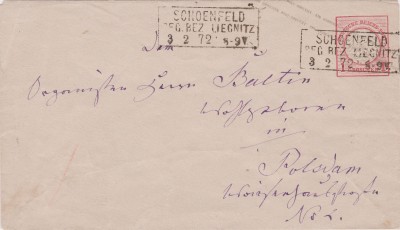 SCHOENFELD
REG. BEZ. LIEGNITZ
3 2 72 8-9V.
SCHOENFELD
REG. BEZ. LIEGNITZ
3 2 72 8-9V.
Dem
Organisten Herrn Baltin
Wohlgeboren
in
Potsdam
Waisenhausstrasse
No